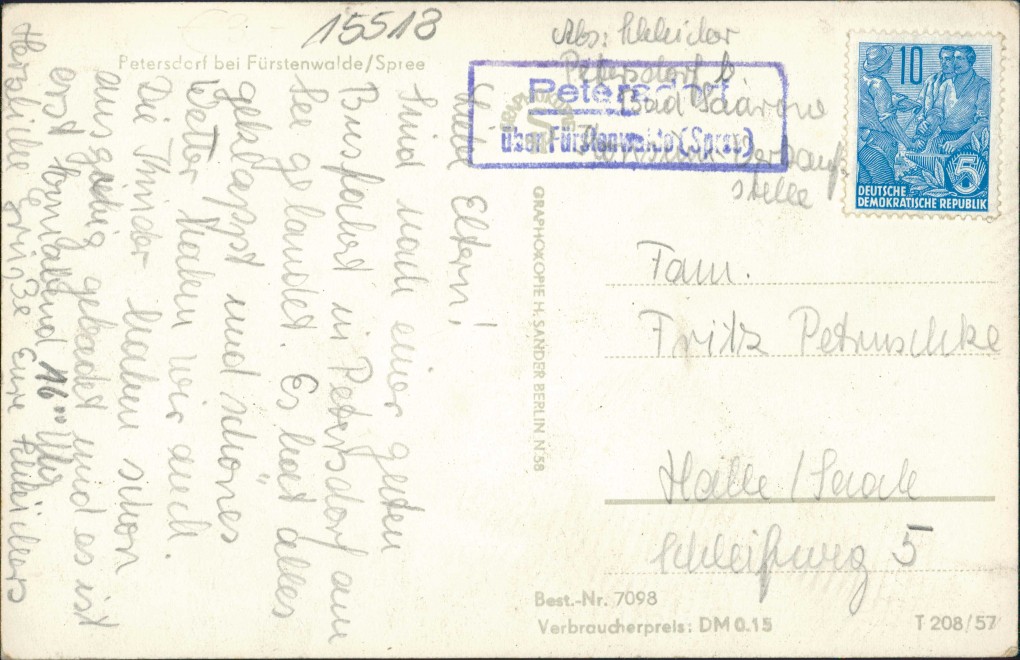 15518
Petersdorf bei Fürstenwalde/Spree
Liebe Eltern!
Sind nach einer guten
Busfahrt in Petersdorf am
See gelandet. Es hat alles
geklappt und schönes
Wetter haben wir auch.
Die Kinder haben schon
ausgiebig gebadet und es ist
erst Sonnabend 16⁰⁰ Uhr
Herzliche Grüße Eure Schleichers
Abs: Schleicher
Petersdorf b.
Bad Saarow
Konsum Verkauf-
stelle
Petersdorf
über Fürstenwalde (Spree)
10
5
DEUTSCHE
DEMOKRATISCHE REPUBLIK
GRAPHOKOPIE H. SANDER BERLIN N 58
Fam.
Fritz Petruschke
Halle/Saale
Schleifweg 5
Best.-Nr. 7098
Verbraucherpreis: DM 0.15
T 208/57